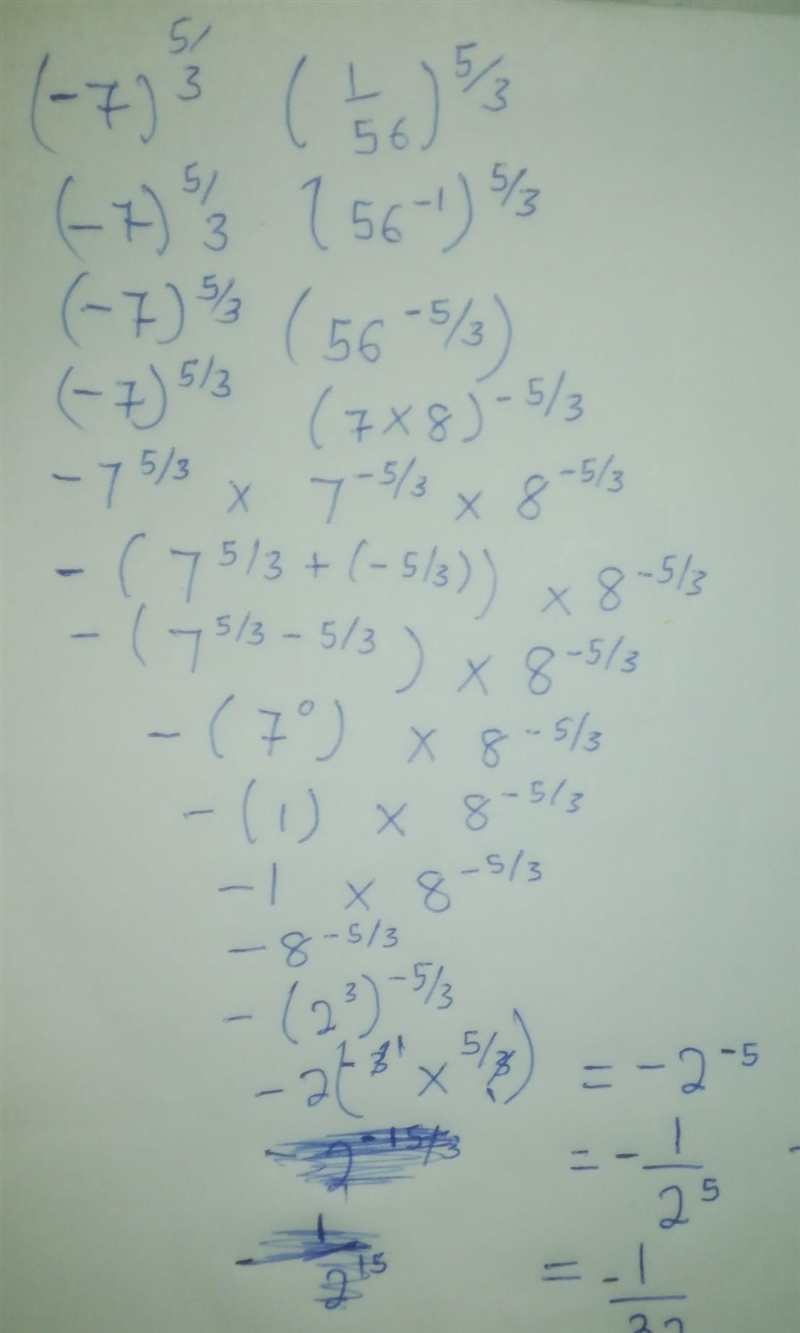 (-7)^5/3 (1/56)^5/3
(-7)^5/3 (56^-1)^5/3
(-7)^5/3 (56^-5/3)
(-7)^5/3 (7×8)^-5/3
-7^5/3 × 7^-5/3 × 8^-5/3
-(7^5/3+(-5/3)) × 8^-5/3
-(7^5/3-5/3) × 8^-5/3
-(7^0) × 8^-5/3
-(1) × 8^-5/3
-1 × 8^-5/3
-8^-5/3
-(2^3)^-5/3
-2(-3^1 × 5/3) = -2^-5
-2^-15/3 = -1/2^5
-1/2^15 = -1/32